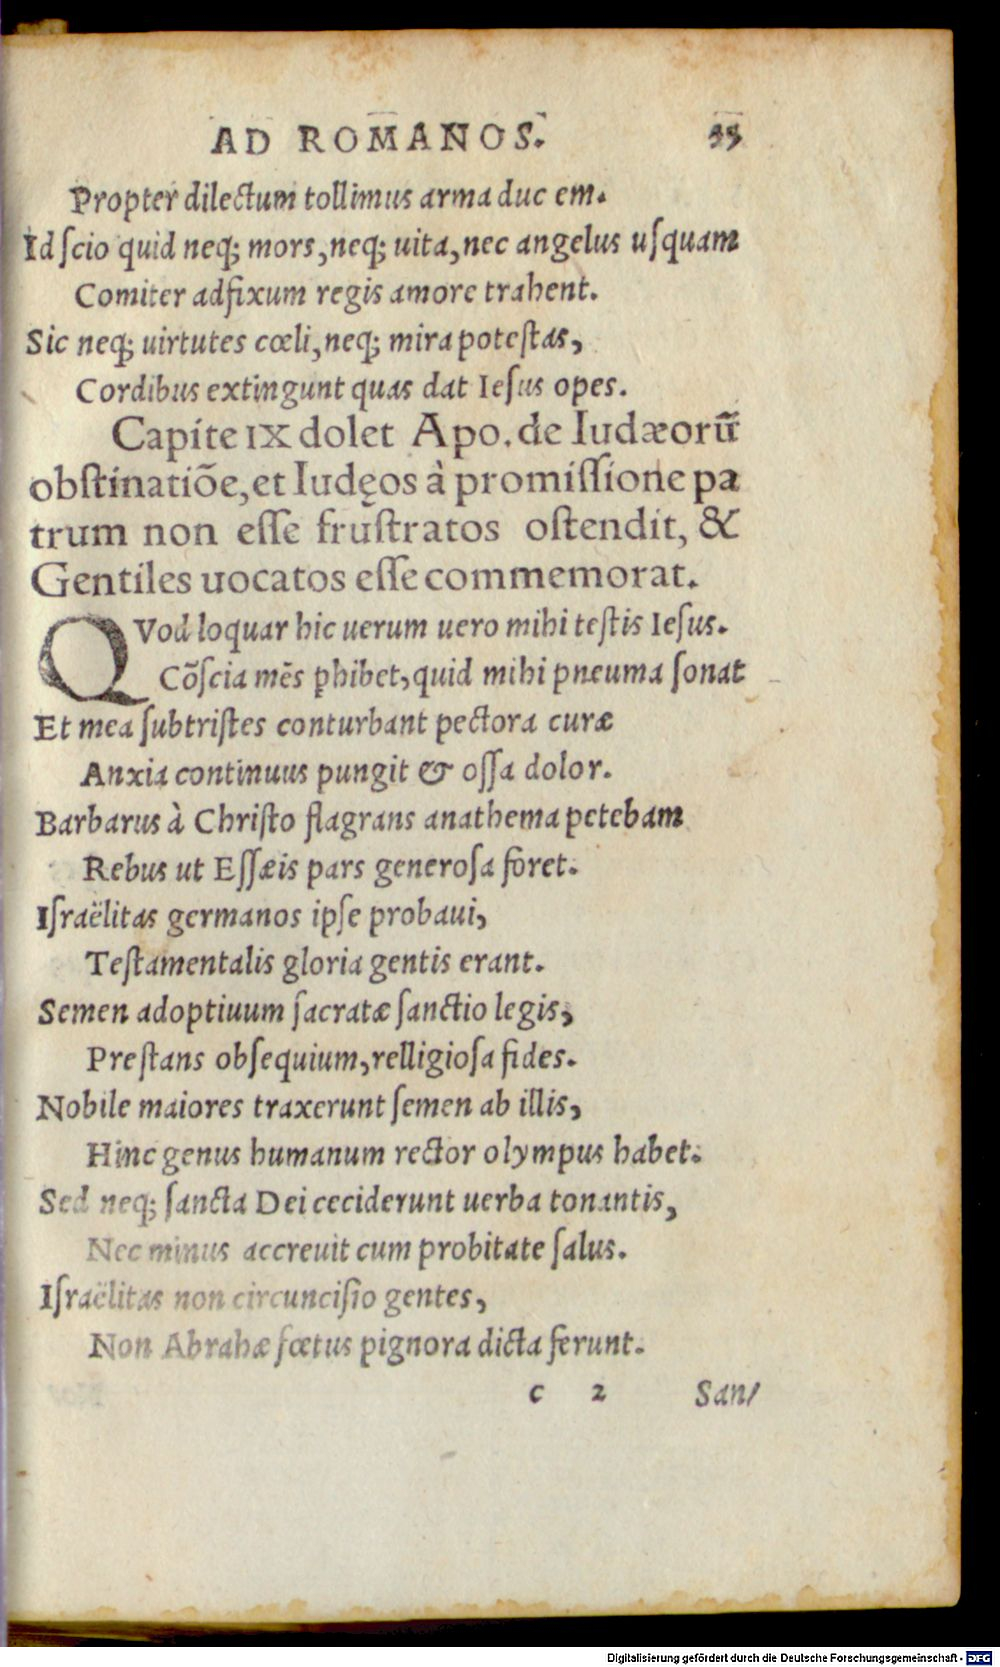 AD ROMANOS. 35
Propter dilectum tollimus arma duc em.
Id ſcio quid neq; mors, neq; uita, nec angelus uſquam
Comiter adfixum regis amore trahent.
Sic neq; uirtutes cœli, neq; mira poteſtas,
Cordibus extingunt quas dat Ieſus opes.
Capite IX dolet Apo. de Iudæorū
obſtinatiōe, et Iudęos à promiſſione pa
trum non eſſe fruſtratos oſtendit, &
Gentiles uocatos eſſe commemorat.
QVod loquar hic uerum uero mihi teſtis Ieſus.
Cōſcia mēs ꝓhibet, quid mihi pneuma ſonat
Et mea ſubtriſtes conturbant pectora curæ
Anxia continuus pungit & oſſa dolor.
Barbarus à Chriſto flagrans anathema petebam
Rebus ut Eſſæis pars generoſa foret.
Iſraëlitas germanos ipſe probaui,
Teſtamentalis gloria gentis erant.
Semen adoptiuum ſacratæ ſanctio legis,
Preſtans obſequium, relligioſa fides.
Nobile maiores traxerunt ſemen ab illis,
Hinc genus humanum rector olympus habet.
Sed neq; ſancta Dei ceciderunt uerba tonantis,
Nec minus accreuit cum probitate ſalus.
Iſraëlitas non circunciſio gentes,
Non Abrahæ fœtus pignora dicta ferunt.
c 2 San/
Digitalisierung gefördert durch die Deutsche Forschungsgemeinschaft - DFG